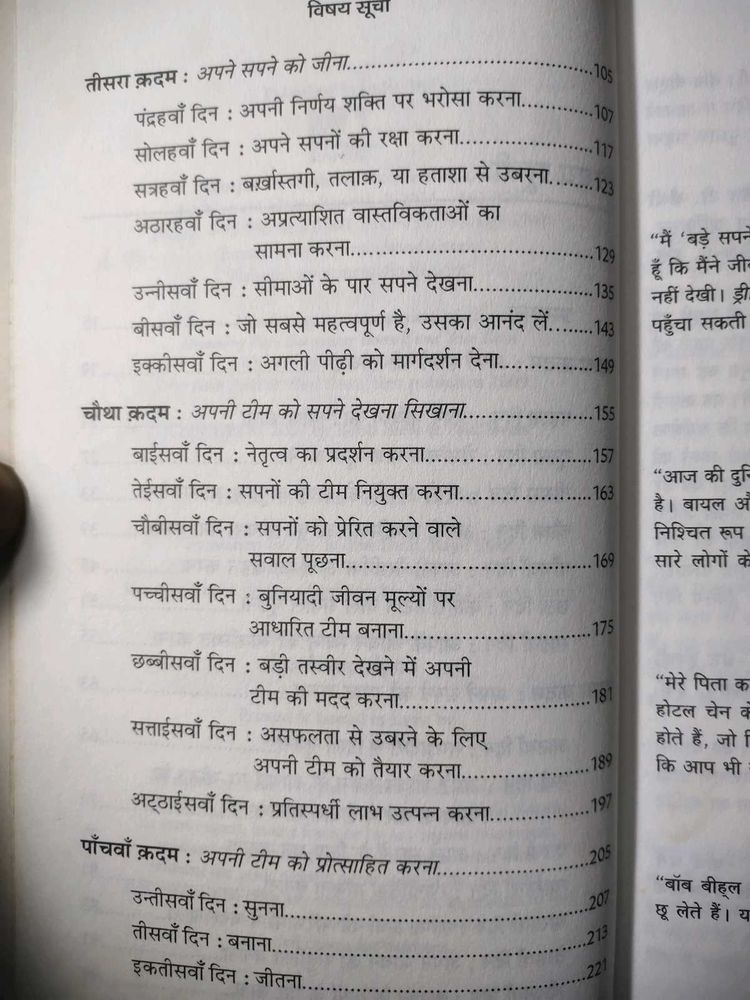 विषय सूची
तीसरा क़दम : अपने सपने को जीना..........................................105
पंद्रहवाँ दिन : अपनी निर्णय शक्ति पर भरोसा करना...............107
सोलहवाँ दिन : अपने सपनों की रक्षा करना......................117
सत्रहवाँ दिन : बर्ख़ास्तगी, तलाक़, या हताशा से उबरना......123
अठारहवाँ दिन : अप्रत्याशित वास्तविकताओं का
सामना करना........................................129
उन्नीसवाँ दिन : सीमाओं के पार सपने देखना....................135
बीसवाँ दिन : जो सबसे महत्वपूर्ण है, उसका आनंद लें........143
इक्कीसवाँ दिन : अगली पीढ़ी को मार्गदर्शन देना................149
चौथा क़दम : अपनी टीम को सपने देखना सिखाना......................155
बाईसवाँ दिन : नेतृत्व का प्रदर्शन करना............................157
तेईसवाँ दिन : सपनों की टीम नियुक्त करना......................163
चौबीसवाँ दिन : सपनों को प्रेरित करने वाले
सवाल पूछना.........................................169
पच्चीसवाँ दिन : बुनियादी जीवन मूल्यों पर
आधारित टीम बनाना...............................175
छब्बीसवाँ दिन : बड़ी तस्वीर देखने में अपनी
टीम की मदद करना................................181
सत्ताईसवाँ दिन : असफलता से उबरने के लिए
अपनी टीम को तैयार करना.....................189
अट्ठाईसवाँ दिन : प्रतिस्पर्धी लाभ उत्पन्न करना.................197
पाँचवाँ क़दम : अपनी टीम को प्रोत्साहित करना.........................205
उन्तीसवाँ दिन : सुनना.................................................207
तीसवाँ दिन : बनाना...................................................213
इकतीसवाँ दिन : जीतना..............................................221
“मैं ‘बड़े सपने
हूँ कि मैंने
नहीं देखी।
पहुँचा सकती
“आज की
है। बायल
निश्चित रूप
सारे लोगों के
“मेरे पिता
होटल चेन
होते हैं, जो
कि आप भी
“बॉब बीह्ल
छू लेते हैं।